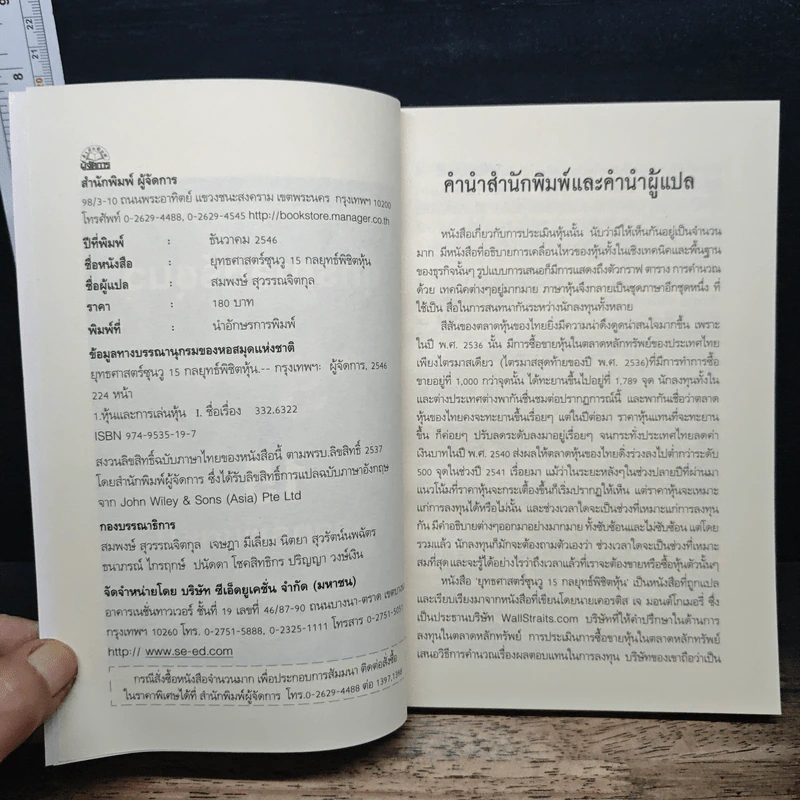 ผู้จัดการ
สำนักพิมพ์ ผู้จัดการ
98/3-10 ถนนพระอาทิตย์ แขวงชนะสงคราม เขตพระนคร กรุงเทพฯ 10200
โทรศัพท์ 0-2629-4488, 0-2629-4545 http://bookstore.manager.co.th
ปีที่พิมพ์ : ธันวาคม 2546
ชื่อหนังสือ : ยุทธศาสตร์ซุนวู 15 กลยุทธ์พิชิตหุ้น
ชื่อผู้แปล : สมพงษ์ สุวรรณจิตกุล
ราคา : 180 บาท
พิมพ์ที่ : นำอักษรการพิมพ์
ข้อมูลทางบรรณานุกรมของหอสมุดแห่งชาติ
ยุทธศาสตร์ซุนวู 15 กลยุทธ์พิชิตหุ้น.-- กรุงเทพฯ: ผู้จัดการ, 2546
224 หน้า
1.หุ้นและการเล่นหุ้น I. ชื่อเรื่อง 332.6322
ISBN 974-9535-19-7
สงวนลิขสิทธิ์ฉบับภาษาไทยของหนังสือนี้ ตามพรบ.ลิขสิทธิ์ 2537
โดยสำนักพิมพ์ผู้จัดการ ซึ่งได้รับลิขสิทธิ์การแปลฉบับภาษาอังกฤษ
จาก John Wiley & Sons (Asia) Pte Ltd
กองบรรณาธิการ
สมพงษ์ สุวรรณจิตกุล เจษฎา มีเลี่ยม นิตยา สุวรัตน์นพฉัตร
ธนาภรณ์ ไกรฤกษ์ ปนัดดา โชคสิทธิกร ปริญญา วงษ์เงิน
จัดจำหน่ายโดย บริษัท ซีเอ็ดยูเคชั่น จำกัด (มหาชน)
อาคารเนชั่นทาวเวอร์ ชั้นที่ 19 เลขที่ 46/87-90 ถนนบางนา-ตราด
กรุงเทพฯ 10260 โทร. 0-2751-5888, 0-2325-1111 โทรสาร
http:// www.se-ed.com
กรณีสั่งซื้อหนังสือจำนวนมาก เพื่อประกอบการสัมมนา ติดต่อสั่งซื้อ
ในราคาพิเศษได้ที่ สำนักพิมพ์ผู้จัดการ โทร.0-2629-4488 ต่อ 1397,
คำนำสำนักพิมพ์และคำนำผู้แปล
หนังสือเกี่ยวกับการประเมินหุ้นนั้น นับว่ามีให้เห็นกันอยู่เป็นจำนวน
มาก มีหนังสือที่อธิบายการเคลื่อนไหวของหุ้นทั้งในเชิงเทคนิคและพื้นฐาน
ของธุรกิจนั้นๆ รูปแบบการเสนอก็มีการแสดงถึงตัวกราฟ ตาราง การคำนวณ
ด้วย เทคนิคต่างๆอยู่มากมาย ภาษาหุ้นจึงกลายเป็นชุดภาษาอีกชุดหนึ่ง ที่
ใช้เป็น สื่อในการสนทนากันระหว่างนักลงทุนทั้งหลาย
สีสันของตลาดหุ้นของไทยยิ่งมีความน่าดึงดูดน่าสนใจมากขึ้น เพราะ
ในปี พ.ศ. 2536 นั้น มีการซื้อขายหุ้นในตลาดหลักทรัพย์ของประเทศไทย
เพียงไตรมาสเดียว (ไตรมาสสุดท้ายของปี พ.ศ. 2536)ที่มีการทำการซื้อ
ขายอยู่ที่ 1,000 กว่าจุดนั้น ได้ทะยานขึ้นไปอยู่ที่ 1,789 จุด นักลงทุนทั้งใน
และต่างประเทศต่างพากันชื่นชมต่อปรากฏการณ์นี้ และพากันเชื่อว่าตลาด
หุ้นของไทยคงจะทะยานขึ้นเรื่อยๆ แต่ในปีต่อมา ราคาหุ้นแทนที่จะทะยาน
ขึ้น ก็ค่อยๆ ปรับลดระดับลงมาอยู่เรื่อยๆ จนกระทั่งประเทศไทยลดค่า
เงินบาทในปี พ.ศ. 2540 ส่งผลให้ตลาดหุ้นของไทยดิ่งร่วงลงไปต่ำกว่าระดับ
500 จุดในช่วงปี 2541 เรื่อยมา แม้ว่าในระยะหลังๆในช่วงปลายปีที่ผ่านมา
แนวโน้มที่ราคาหุ้นจะกระเตื้องขึ้นก็เริ่มปรากฏให้เห็น แต่ราคาหุ้นจะเหมาะ
แก่การลงทุนได้หรือไม่นั้น และช่วงเวลาใดจะเป็นช่วงที่เหมาะแก่การลงทุน
กัน มีคำอธิบายต่างๆออกมาอย่างมากมาย ทั้งซับซ้อนและไม่ซับซ้อน แต่โดย
รวมแล้ว นักลงทุนก็มักจะต้องถามตัวเองว่า ช่วงเวลาใดจะเป็นช่วงที่เหมาะ
สมที่สุด และจะรู้ได้อย่างไรว่าถึงเวลาแล้วที่เราจะต้องขายหรือซื้อหุ้นตัวนั้นๆ
หนังสือ 'ยุทธศาสตร์ซุนวู 15 กลยุทธ์พิชิตหุ้น' เป็นหนังสือที่ถูกแปล
และเรียบเรียงมาจากหนังสือที่เขียนโดยนายเคอรติส เจ มอนต์โกเมอรี่ ซึ่ง
เป็นประธานบริษัท WallStraits.com บริษัทที่ให้คำปรึกษาในด้านการ
ลงทุนในตลาดหลักทรัพย์ การประเมินการซื้อขายหุ้นในตลาดหลักทรัพย์
เสนอวิธีการคำนวณเรื่องผลตอบแทนในการลงทุน บริษัทของเขาถือว่าเป็น